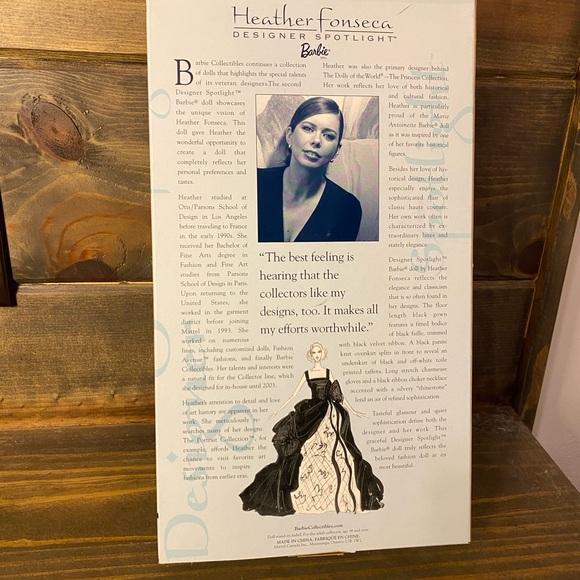 Heather Fonseca
DESIGNER SPOTLIGHT™
Barbie
Barbie Collectibles continues a collection
of dolls that highlights the special talents
of its veteran designers. The second
Designer Spotlight™
Barbie® doll showcases
the unique vision of
Heather Fonseca. This
doll gave Heather the
wonderful opportunity to
create a doll that
completely reflects her
personal preferences and
tastes.
Heather studied at
Otis/Parsons School of
Design in Los Angeles
before traveling to France
in the early 1990s. She
received her Bachelor of
Fine Arts degree in
Fashion and Fine Art
studies from Parsons
School of Design in Paris.
Upon returning to the
United States, she
worked in the garment
district before joining
Mattel in 1993. She
worked on numerous
lines, including customized dolls, Fashion
Avenue™ fashions, and finally Barbie
Collectibles. Her talents and interests were
a natural fit for the Collector line, which
she designed for in-house until 2003.
Heather's attention to detail and love
of art history are apparent in her
work. She meticulously
searches many of her designs.
The Portrait Collection™, for
example, affords Heather the
chance to visit favorite art
movements to inspire
fashions from earlier eras.
Heather was also the primary designer behind
The Dolls of the World® –The Princess Collection.
Her work reflects her love of both historical
and cultural fashion.
Heather is particularly
proud of the Marie
Antoinette Barbie® doll
as it was inspired by one
of her favorite historical
figures.
Besides her love of his-
torical design, Heather
especially enjoys the
sophisticated flair of
classic haute couture.
Her own work often is
characterized by ex-
traordinary lines and
stately elegance.
Designer Spotlight™
Barbie® doll by Heather
Fonseca reflects the
elegance and classicism
that is so often found in
her designs. The floor
length black gown
features a fitted bodice
of black faille, trimmed
with black velvet ribbon. A black panne
knit overskirt splits in front to reveal an
underskirt of black and off-white toile
printed taffeta. Long stretch charmeuse
gloves and a black ribbon choker necklace
accented with a silvery "rhinestone"
lend an air of refined sophistication.
Tasteful glamour and quiet
sophistication define both the
designer and her work. This
graceful Designer Spotlight™
Barbie® doll truly reflects the
beloved fashion doll at its
most beautiful.
"The best feeling is
hearing that the
collectors like my
designs, too. It makes all
my efforts worthwhile."
BarbieCollectibles.com
Doll stand included. For the adult collector, age 14 and over.
MADE IN CHINA. FABRIQUÉ EN CHINE.
Mattel Canada Inc., Mississauga, Ontario L5R 3W2.
Designer
Spotlight